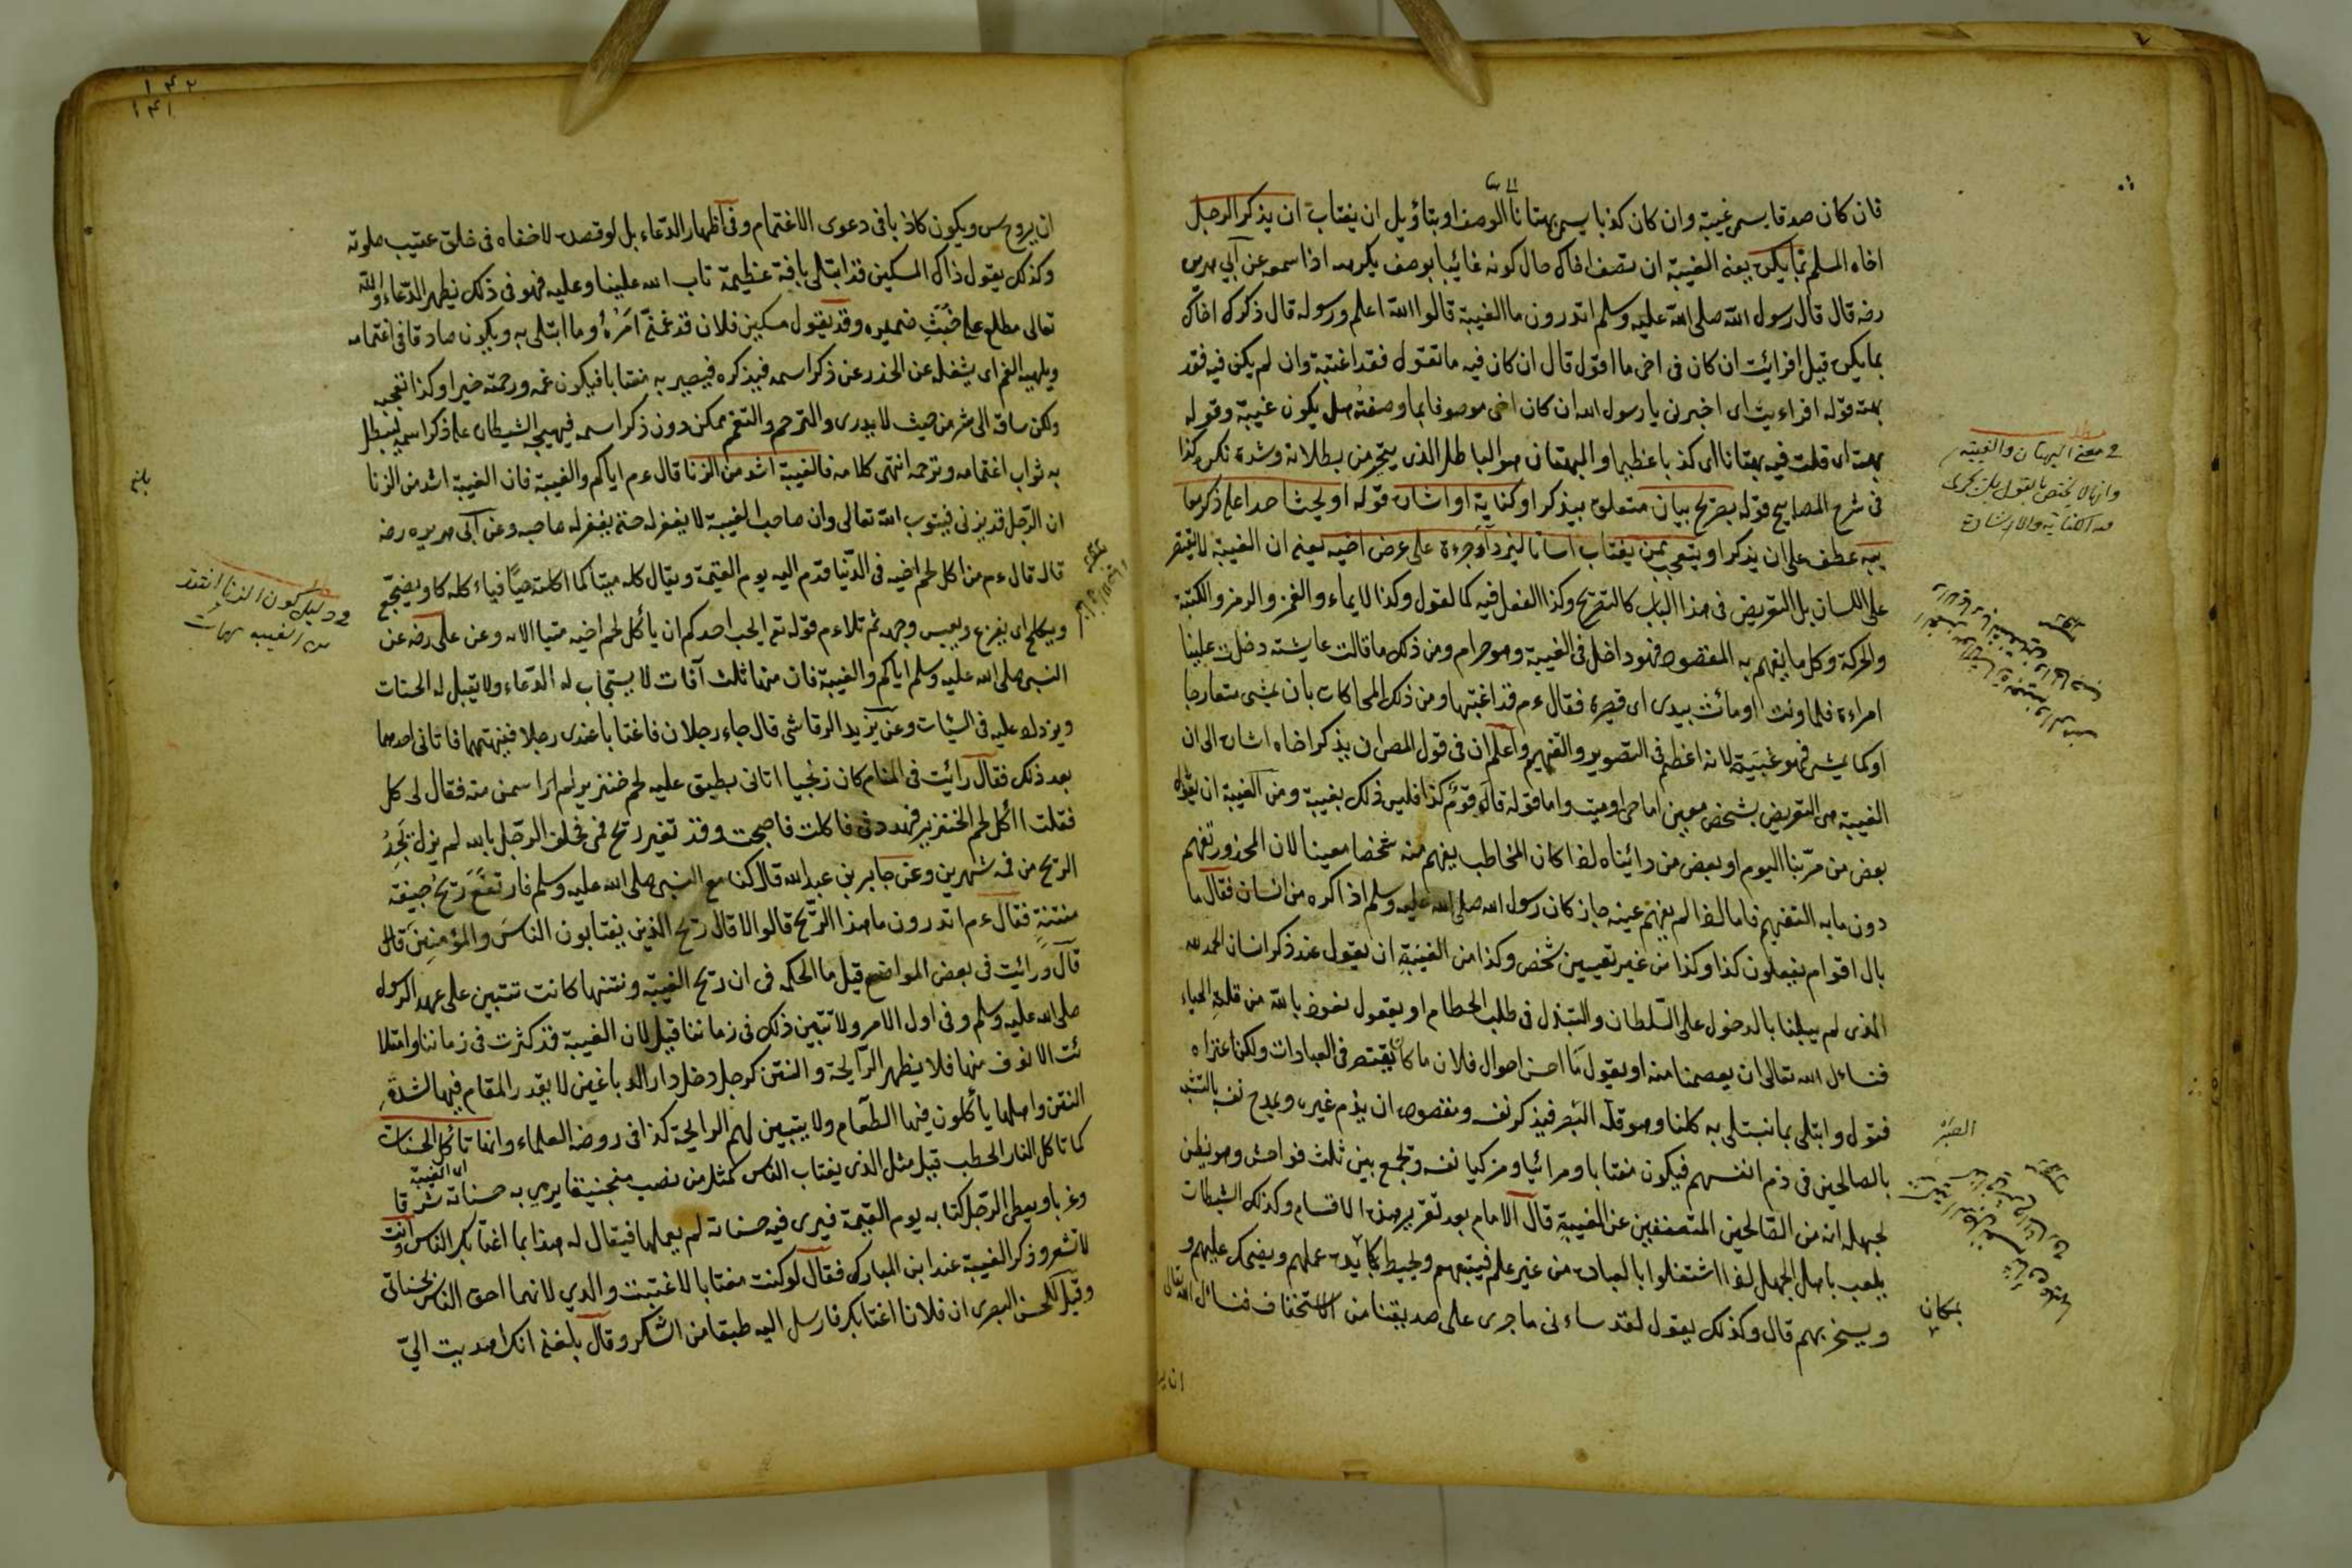 فان كان صدقا يسمى غيبة وان كان كذبا يسمى بهتانا الوصف او بتأويل ان يغتاب ان يذكر الرجل
اخاه المسلم بما يكره يعني الغيبة ان تصف اخاك حال كونه غائبا بوصف يكرهه اذا سمعه عن ابي هريرة
رضه قال قال رسول الله صلى الله عليه وسلم اتدرون ما الغيبة قالوا الله اعلم ورسوله قال ذكرك اخاك
بما يكره قيل افرائيت ان كان في اخي ما اقول قال ان كان فيه ما تقول فقد اغتبته وان لم يكن فيه فقد
بهته قوله افراءيت اى اخبرني يا رسول الله ان كان اخى موصوفا بما وصفته هل يكون غيبة وقوله
بهته اى قلت فيه بهتانا اى كذبا عظيما والبهتان هو الباطل الذى يتحير من بطلانه وشدة نكره كذا
في شرح المصابيح قوله بصريح بيان متعلق بيذكر او كناية او اشارة قوله او يحث احدا على ذكر
عطف على ان يذكر او يتعجب ممن يغتاب انسانا ليزداد جرءة على عرض اخيه يعني ان الغيبة لا يقتصر
على اللسان بل التعريض في هذا الباب كالتصريح وكذا الفعل فيه كالقول وكذا الايماء والغمز والرمز والكتبة
والحركة وكل ما يفهم به المقصود فهو داخل في الغيبة وهو حرام ومن ذلك ما قالت عايشة دخلت علينا
امراءة فلما ولت اومائت بيدى اى قصيرة فقال ءم قد اغتبتها ومن ذلك المحاكات بان يمشى متعارجا
او كما يمشى فهو غيبة لانه اعظم في التصوير والتفهيم واعلم ان في قول المص ان يذكر اخاه اشارة الى ان
الغيبة هى التعريض بشخص معين اما حى او ميت واما قوله قال قوم كذا فليس ذلك بغيبة ومن الغيبة ان يقول
بعض من مر بنا اليوم او بعض من رائيناه اذا كان المخاطب يفهم منه شخصا معينا لان المحذور تفهيم
دون ما به التفهيم فاما اذا لم يفهم عينه جاز كان رسول الله صلى الله عليه وسلم اذا اكره من انسان فقال ما
بال اقوام يفعلون كذا وكذا من غير تعيين شخص وكذا من الغيبة ان يقول عند ذكر انسان الحمد لله
الذى لم يبلنا بالدخول على السلطان والتبذل في طلب الحطام او يقول نعوذ بالله من قلة الحياء
فنسائل الله تعالى ان يعصمنا منه او يقول ما احسن احوال فلان ما كان يقصر في العبادات ولكن اعتراه
فتور وابتلى بما نبتلى به كلنا وهو قلة الصبر فيذكر نفسه ومقصوده ان يذم غيره ويمدح نفسه بالتشبه
بالصالحين في ذم انفسهم فيكون مغتابا ومرائيا ومزكيا نفسه وتجمع بين ثلث فواحش وهو يظن
لجهله انه من الصالحين المتعففين عن الغيبة قال الامام بعد تقرير هذه الاقسام وكذلك الشيطان
يلعب باهل الجهل اذا اشتغلوا بالعبادة من غير علم فيتبعهم ويحيط بمكائده عملهم ويضحك عليهم و
ويسخر بهم قال وكذلك يقول لقد ساءنى ما جرى على صديقنا من الاستخفاف فنسائل الله تعالى
ان ير
في معنى البهتان والغيبة
وانها لا يختص بالقول بل يجرى
الكناية والاشارة
الصبر
بمكان
١٤٢
١٤١
ان يروح ويكون كاذبا في دعوى الاغتمام وفي اظهار الدعاء بل لو قصد لاخفاه في خلوة عقيب صلوته
وكذلك يقول ذاك المسكين قد ابتلى بافة عظيمة تاب الله علينا وعليه فهو في ذلك يظهر الدعاء والله
تعالى مطلع على خبث ضميره وقد يقول مسكين فلان قد غمنى امره وما ابتلى به ويكون صادقا في اغتمامه
ويلهيه الغم اى يشغله عن الحذر عن ذكر اسمه فيذكره فيصير به مغتابا فيكون غمه ورحمته خيرا وكذا تعجبه
ولكن ساقه الى شر من حيث لا يدرى والترحم والتغمم ممكن دون ذكر اسمه فيهيجه الشيطان على ذكر اسمه ليبطل
به ثواب اغتمامه وترحمه انتهى كلامه فالغيبة اشد من الزنا قال ءم اياكم والغيبة فان الغيبة اشد من الزنا
ان الرجل قد يزنى فيتوب الله تعالى وان صاحب الغيبة لا يغفر له حتى يغفر له صاحبه وعن ابى هريره رضه
قال قال ءم من اكل لحم اخيه في الدنيا قدم اليه يوم القيمة ويقال كله ميتا كما اكلته حيا فياءكله كا ويضجع
ويكلح اى يفزع ويعبس وجهه ثم تلاءم قوله تع ايحب احدكم ان يأكل لحم اخيه ميتا الاية وعن على رضه عن
النبى صلى الله عليه وسلم اياكم والغيبة فان منها ثلث آفات لا يستجاب له الدعاء ولا يقبل له الحسنات
ويزداد عليه في السيئات وعن يزيد الرقاشى قال جاء رجلان فاغتابا عندى رجلا فنهيتهما فاتانى احدهما
بعد ذلك فقال رائيت في المنام كان زنجيا اتانى بطبق عليه لحم خنزير لم ار اسمن منه فقال لى كل
فقلت ااكل لحم الخنزير فهددنى فاكلت فاصبحت وقد تغير ريح فمى فحلف الرجل بالله لم يزل يجد
الريح من فمه شهرين وعن جابر بن عبد الله قال كنا مع النبى صلى الله عليه وسلم فارتفع ريح جيفة
منتنة فقال ءم اتدرون ما هذا الريح قالوا لا قال ريح الذين يغتابون الناس والمؤمنين قال
قال ورائيت في بعض المواضع قيل ما الحكمة في ان ريح الغيبة ونتنها كانت تتبين على عهد الرسول
صلى الله عليه وسلم وفي اول الامر ولا تتبين ذلك في زماننا قيل لان الغيبة قد كثرت في زماننا وامتلا
ئت الانوف منها فلا يظهر الرايحة والنتن كرجل دخل دار الدباغين لا يقدر المقام فيها لشدة
النتن واهلها يأكلون فيها الطعام ولا يتبين لهم الرايحة كذا في روضة العلماء وانها تأكل الحسنات
كما تاكل النار الحطب قيل مثل الذى يغتاب الناس كمثل من نصب منجنيقا يرمى به حسناته شرقا
اى الغيبة
وغربا ويعطى الرجل كتابه يوم القيمة فيرى فيه حسنات لم يعملها فيقال له هذا بما اغتابك الناس وانت
لا تشعر وذكر الغيبة عند ابن المبارك فقال لو كنت مغتابا لاغتبت والدي لانهما احق الناس بحسناتى
وقيل للحسن البصرى ان فلانا اغتابك فارسل اليه طبقا من السكر وقال بلغنى انك اهديت الي
في دليل كون الزنا اشد
من الغيبة